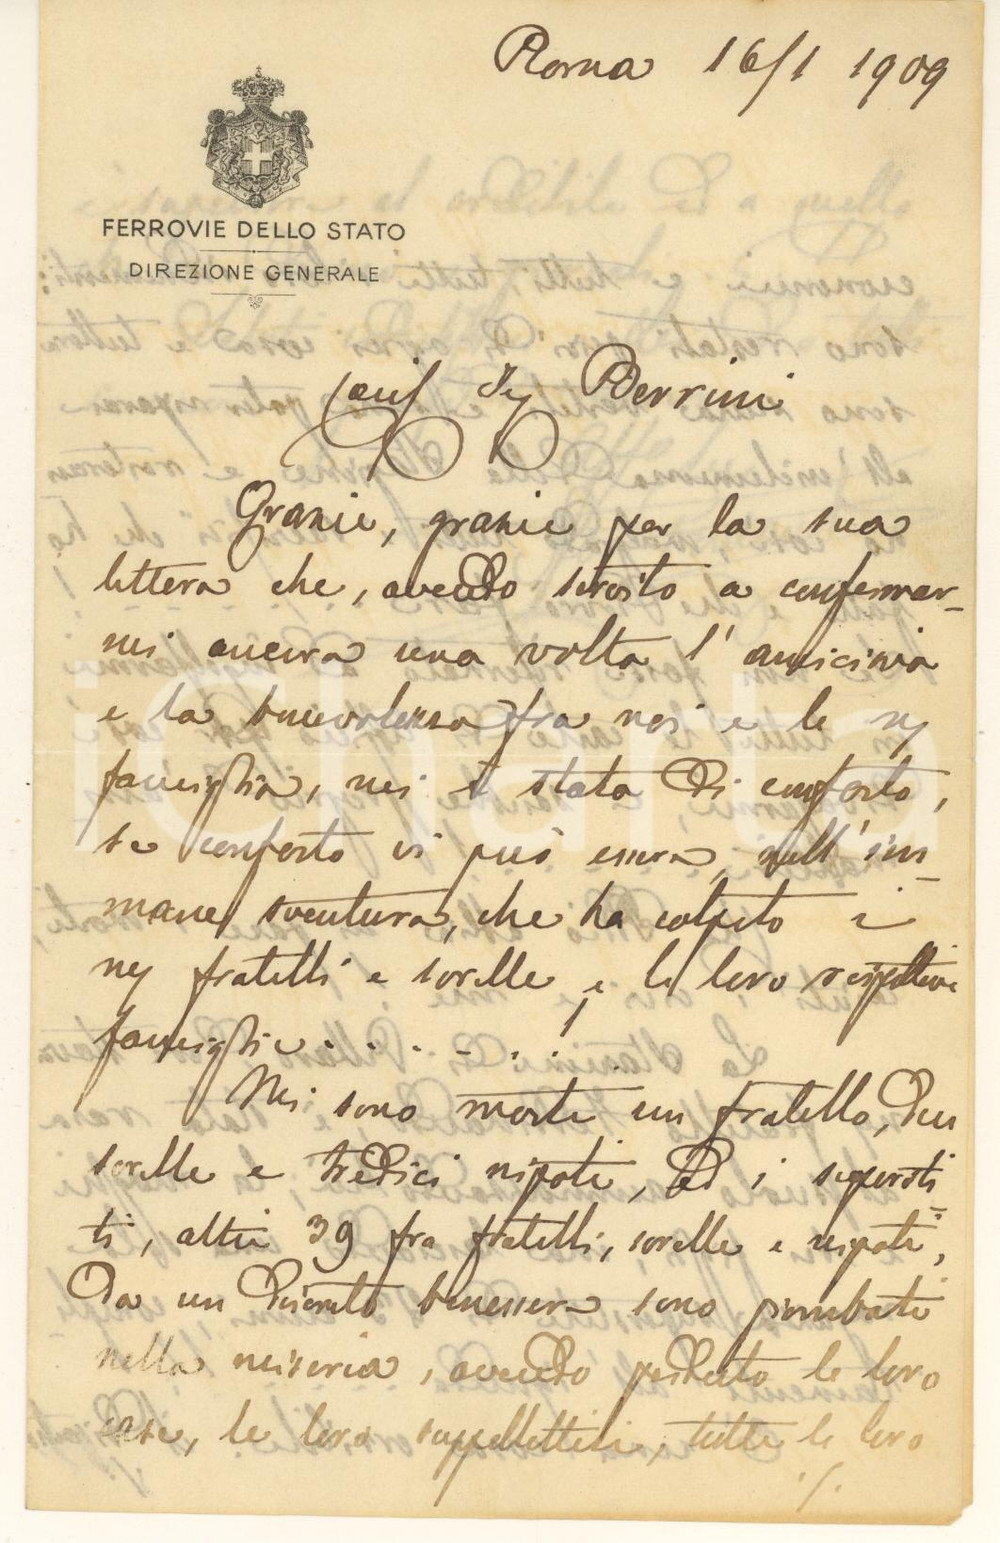 Roma 16/1 1909
FERROVIE DELLO STATO
DIREZIONE GENERALE
Perrini
Grazie, grazie per la sua
lettera che, avendo servito a confermar-
mi ancora una volta l'amicizia
e la benevolenza fra noi e le
famiglia, mi è stata di conforto,
se conforto vi può essere, nell'im-
mane sventura, che ha colpito i
fratelli e sorelle, e le loro rispettive
famiglie . . . . . . !
Mi sono morti un fratello, due
sorelle e tredici nipoti, ed i supersti-
ti, altri 39 fra fratelli, sorelle e nipoti,
da un discreto benessere sono piombati
nella miseria, avendo perduto le loro
case, le loro suppellettili, tutti i loro
./.
iCharta